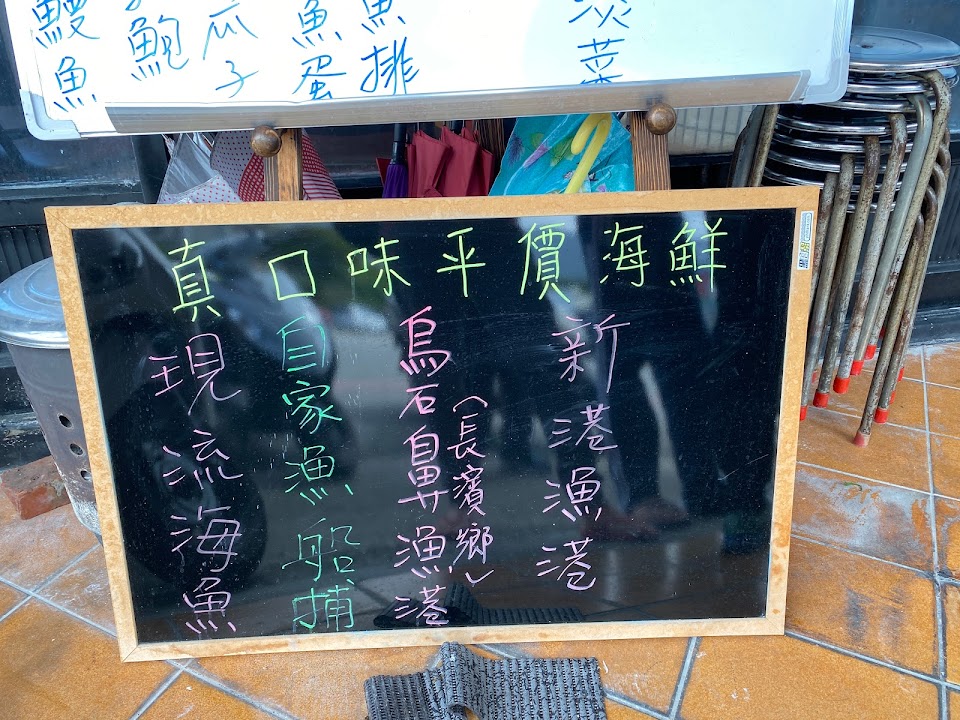 鰻魚
鮑
瓜子
魚蛋
魚排
淡菜
真口味平價海鮮
現流海魚
自家漁船捕
烏石鼻漁港
(長濱鄉)
新港漁港